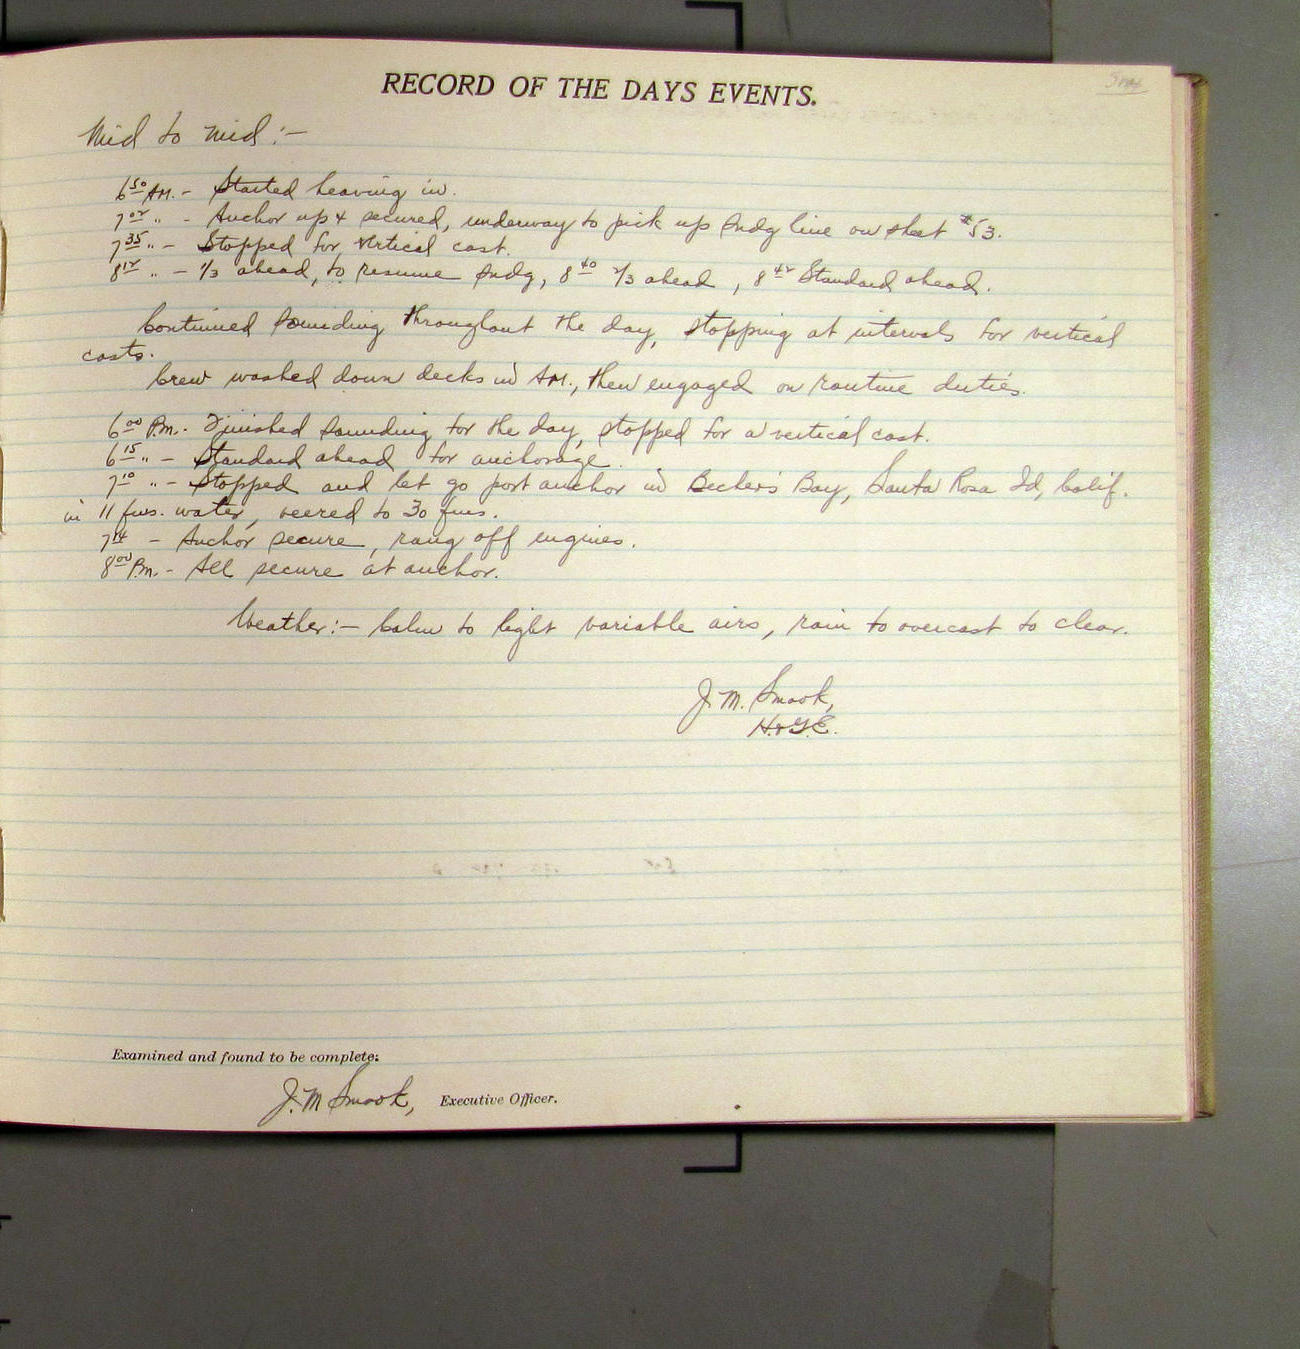 RECORD OF THE DAYS EVENTS.
Mid to mid:—
6 50 AM. - Started heaving in.
7 02 " - Anchor up & secured, underway to pick up sndg line on sheet #53.
7 35 " - Stopped for vertical cast.
8 12 " - 1/3 ahead, to resume sndg, 8 40 2/3 ahead, 8 42 Standard ahead.
Continued sounding throughout the day, stopping at intervals for vertical
casts.
Crew washed down decks in AM., then engaged on routine duties.
6 00 P.m. - Finished sounding for the day, stopped for a vertical cast.
6 15 " - Standard ahead for anchorage.
7 10 " - Stopped and let go port anchor in Becher's Bay, Santa Rosa Id, Calif.
in 11 fms. water, veered to 30 fms.
7 14 - Anchor secure, rang off engines.
8 00 P.m. - All secure at anchor.
Weather:— Calm to light variable airs, rain to overcast to clear.
J. M. Smook,
H. & G.E.
Examined and found to be complete:
J. M Smook, Executive Officer.